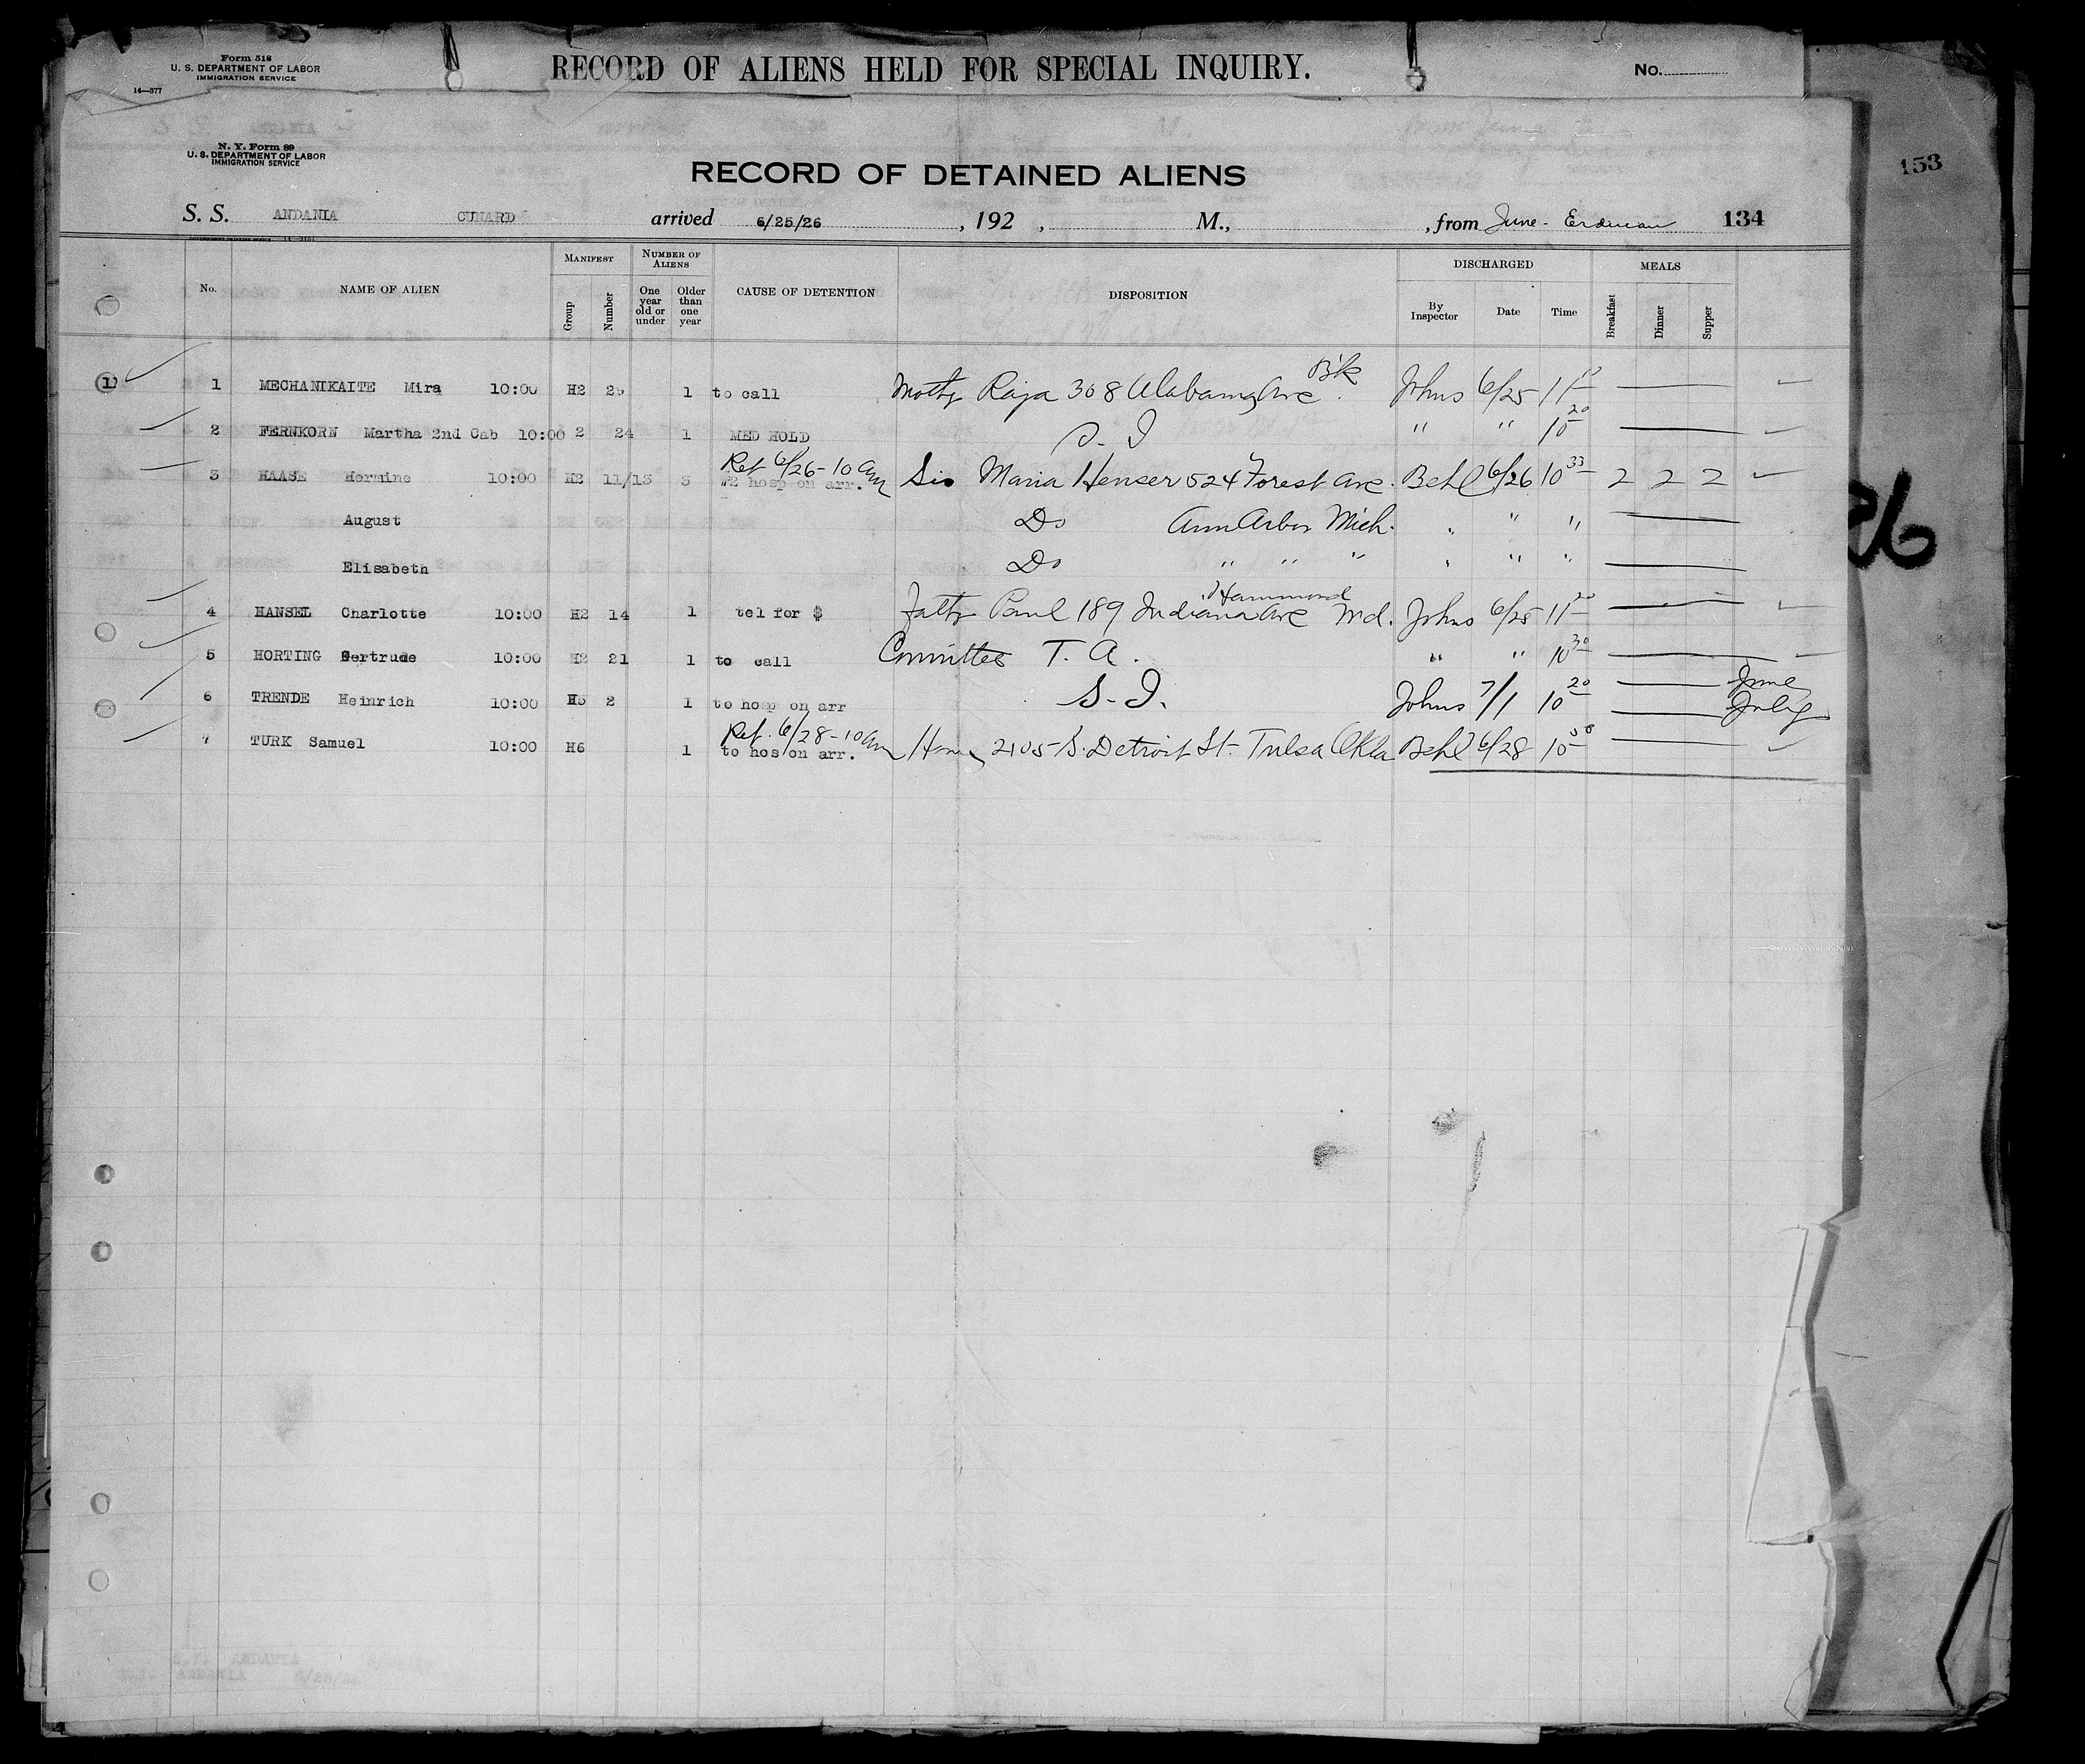 Form 518
U. S. DEPARTMENT OF LABOR
IMMIGRATION SERVICE
14—377
RECORD OF ALIENS HELD FOR SPECIAL INQUIRY.
No.
N. Y. Form 89
U. S. DEPARTMENT OF LABOR
IMMIGRATION SERVICE
RECORD OF DETAINED ALIENS
153
S. S. ANDANIA CUNARD arrived 6/25/26, 192 , M., , from June - Erdman 134
No. NAME OF ALIEN MANIFEST Group Number NUMBER OF ALIENS One year old or under Older than one year CAUSE OF DETENTION DISPOSITION DISCHARGED By Inspector Date Time MEALS Breakfast Dinner Supper
1 1 MECHANIKAITE Mira 10:00 H2 25 1 to call Moth Raja 308 Alabama Ave. Bk Johns 6/25 11
2 FERNKORN Martha 2nd Cab 10:00 2 24 1 MED HOLD S. I " " 10 20
3 HAASE Hermine 10:00 H2 11/13 3 Ret 6/26 - 10 am #2 hosp on arr. Sis Maria Henser 524 Forest Ave. Behl 6/26 10 33 2 2 2
August Do Ann Arbor Mich. " " "
Elisabeth Do " " " " " "
4 HANSEL Charlotte 10:00 H2 14 1 tel for $ Fath Paul 189 Indiana Ave Hammond Ind. Johns 6/25 11 20
5 HORTING Gertrude 10:00 H2 21 1 to call Committee T. A. " " 10 30
6 TRENDE Heinrich 10:00 H5 2 1 to hosp on arr S. I. Johns 7/1 10 20 June July
7 TURK Samuel 10:00 H6 1 Ret. 6/28 - 10 am to hos on arr. 2105 S. Detroit St - Tulsa Okla Behl 6/28 10
26